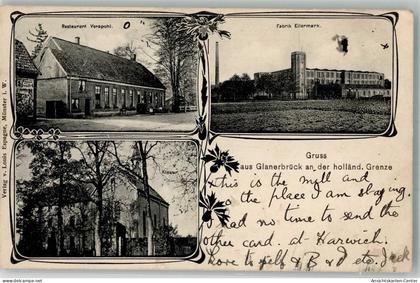 Restaurant Verspohl.
Fabrik Eilermark.
Kloster
Gruss
aus Glanerbrück an der holländ. Grenze
Verlag v. Louis Espagne, Münster i. W.
This is the mill and
the place I am staying.
had no time to send the
other card. at Harwich.
love to self & B & D etc Jack
© Ansichtskarten-Center